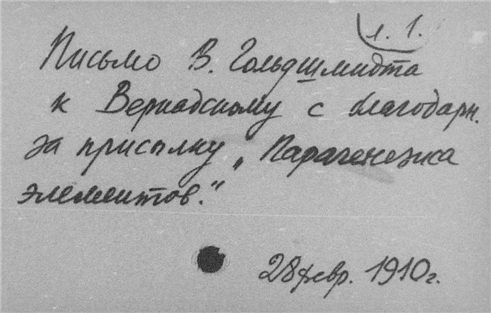 л. 1.
Письмо В. Гольдшмидта
к Вернадскому с благодарн.
за присылку „Парагенезиса
элементов."
28 февр. 1910 г.